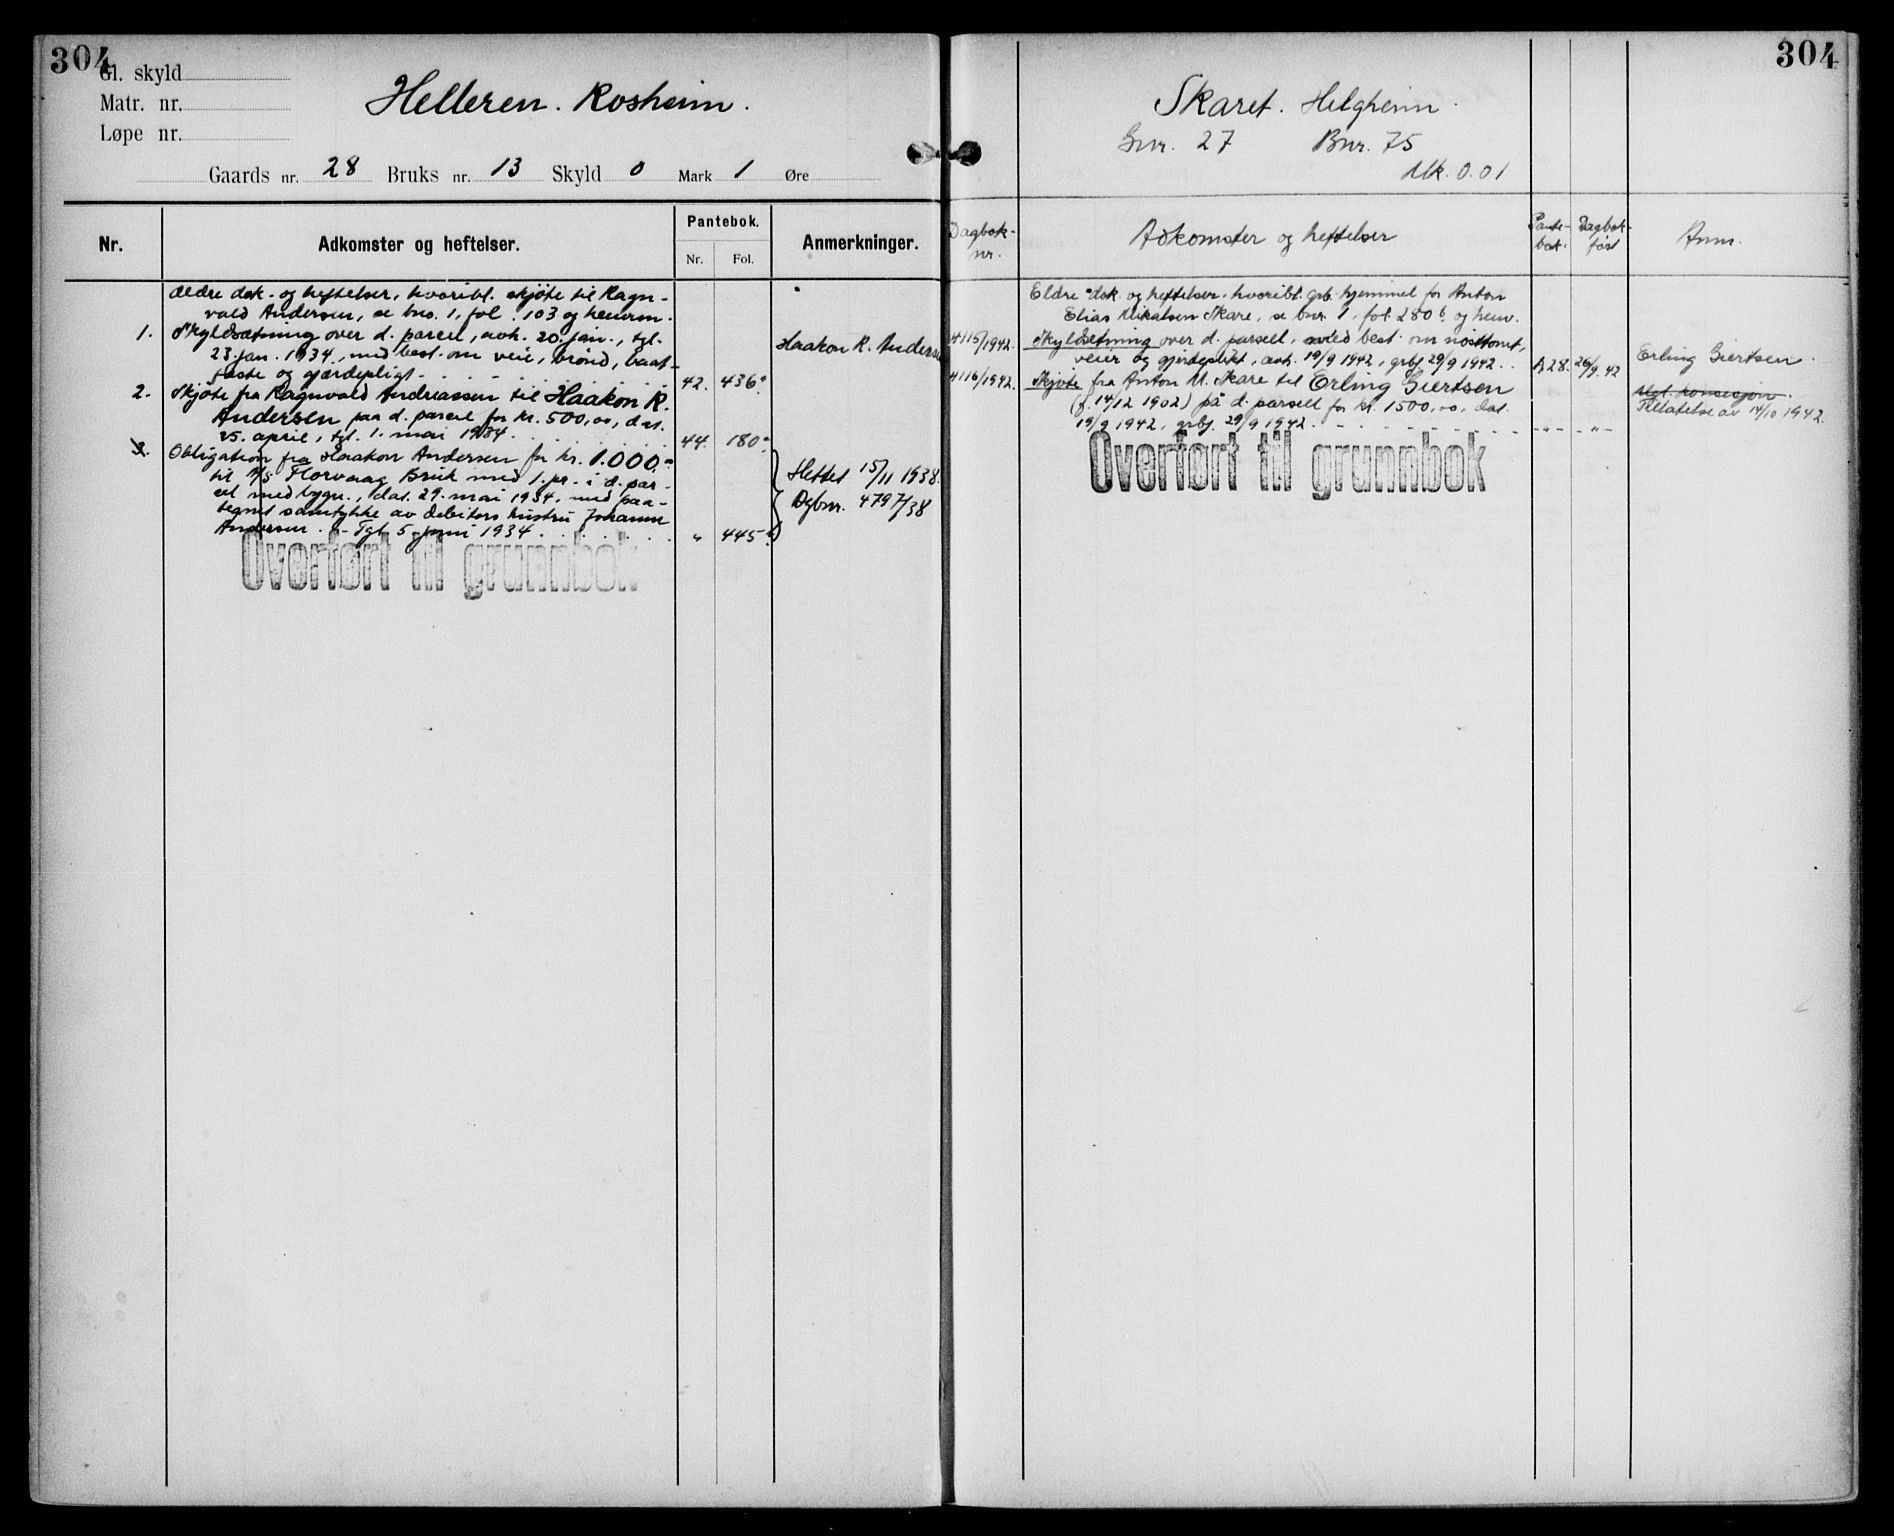 304
Gl. skyld
Matr. nr.
Løpe nr.
Helleren. Rosheim.
Gaards nr. 28 Bruks nr. 13 Skyld 0 Mark 1 Øre
Nr. Adkomster og heftelser. Pantebok. Nr. Fol. Anmerkninger.
Ældre dok. og heftelser, hvoribl. skjøte til Ragn-
vald Andersen, se bno. 1, fol. 103 og henvisn.
1. Skyldsætning over d. parcel, avh. 20. jan., tgl.
23. jan. 1934, med best. om veie, brönd, baat-
fæste og gjærdepligt. 42. 436 Haakon R. Anders
2. Skjöte fra Ragnvald Andreassen til Haakon R.
Andersen paa d. parcel for kr. 500,00, dat.
25. april, tgl. 1. mai 1934. 44. 180
3. Obligation fra Haakon Andersen for kr. 1.000,
til A/S Florvaag Bruk med 1. pr. i d. par-
cel med bygn., dat. 29. mai 1934. med paa-
tegnet samtykke av debitors hustru Johanne
Andersen. - Tgl. 5. juni 1934. " 445
Slettet 15/11 1938.
Dgbnr. 4797/38
Overført til grunnbok
304
Skaret. Helgheim.
Gnr. 27 Bnr. 75
Mk. 0.01
Dagbok-
nr. Adkomster og heftelser Pante-
bok. Dagbok-
ført Anm.
Eldre dok. og heftelser, hvoribl. grb. hjemmel for Anton
Elias Mikalsen Skare, se bnr. 1, fol. 280 b og henv.
4115/1942. Skyldsetning over d. parsell, med best. om nösttomt,
veier og gjerdeplikt, avh. 19/9 1942, grbf. 29/9 1942. A 28. 26/9. 42 Erling Giertsen.
4116/1942. Skjøte fra Anton M. Skare til Erling Giertsen
(f. 14/12 1902) på d. parsell for kr. 1500,00, dat.
19/9 1942, grbf. 29/9 1942. - " - - " -
Mgl. konsesjon.
Tillatelse av 14/10 1942.
Overført til grunnbok